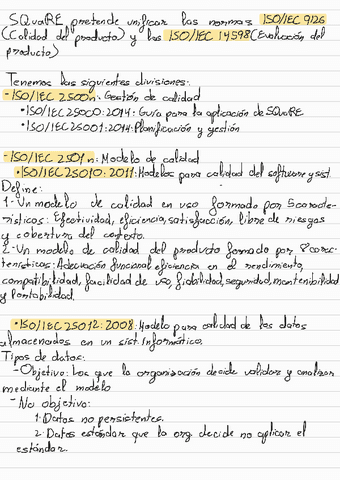 SQuaRE pretende unificar las normas ISO/IEC 9126
(Calidad del producto) y las ISO/IEC 14598 (Evaluación del
producto)
Tenemos las siguientes divisiones:
- ISO/IEC 2500n: Gestión de calidad
• ISO/IEC 25000:2014: Guía para la aplicación de SQuaRE
• ISO/IEC25001:2014: Planificación y gestión
- ISO/IEC 2501n: Modelo de calidad
• ISO/IEC 25010:2011: Modelos para calidad del software y sist.
Define:
1- Un modelo de calidad en uso formado por 5 caracte-
rísticas: Efectividad, eficiencia, satisfacción, libre de riesgos
y cobertura del contexto.
2- Un modelo de calidad del producto formado por 8 carac-
terísticas: Adecuación funcional, eficiencia en el rendimiento,
compatibilidad, facilidad de uso, fiabilidad, seguridad, mantenibilidad
y Portabilidad.
• ISO/IEC 25012:2008: Modelo para calidad de los datos
almacenados en un sist. Informático.
Tipos de datos:
- Objetivo: Los que la organización decide validar y analizar
mediante el modelo
- No objetivo:
1. Datos no persistentes.
2. Datos estándar que la org. decide no aplicar el
estándar.